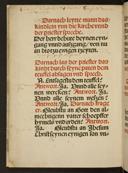 Darnach leytte mann das
kindleyn inn die kirchen vnnd
der priester spreche.
Der herr behüte deynen eyn
gang vnnd außgang/ von nu
an biß zu ewigen zeyten.
Darnach las der priester das
kindt durch seyne paten dem
teuffel absagen vnd sprech.
N. Entsagestu dem teuffel?
Antwort. Ja. Vnnd alle sey
nen wercken? Antwort. Ja.
Vnnd alle seynem wesen?
Antwort. Ja. Darnach frage
er. Glewbstu an Gott den al
mechtigen vatter schoepffer
hymels vnd erden? Antwort.
Ja. Glewbstu an Jhesum
Christ seynen eynigen son vn